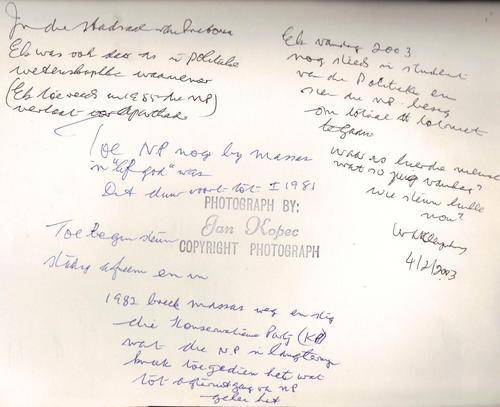 In die stadsaal van Pretoria
Ek was ook daar as 'n politieke
wetenskaplike waarnemer
(Ek het reeds in 1985 die NP
verlaat oor Apartheid
Toe NP nog by massas
in "lief god" was
Dit duur voort tot ± 1981
PHOTOGRAPH BY:
Jan Kopec
COPYRIGHT PHOTOGRAPH
Toe begin steun
stadig afneem en in
1982 breek massas weg en stig
die Konserwatiewe Party (KP)
wat die NP 'n langtermyn
breuk toegedien het wat
tot agteruitgang van NP
gelei het
Ek vandag 2003
nog steeds 'n student
van die Politieke en
sien die NP besig
om totaal tot niet
te gaan
Waar is hierdie mense
wat so juig vandag?
wie steun hulle
nou?
4/2/2003